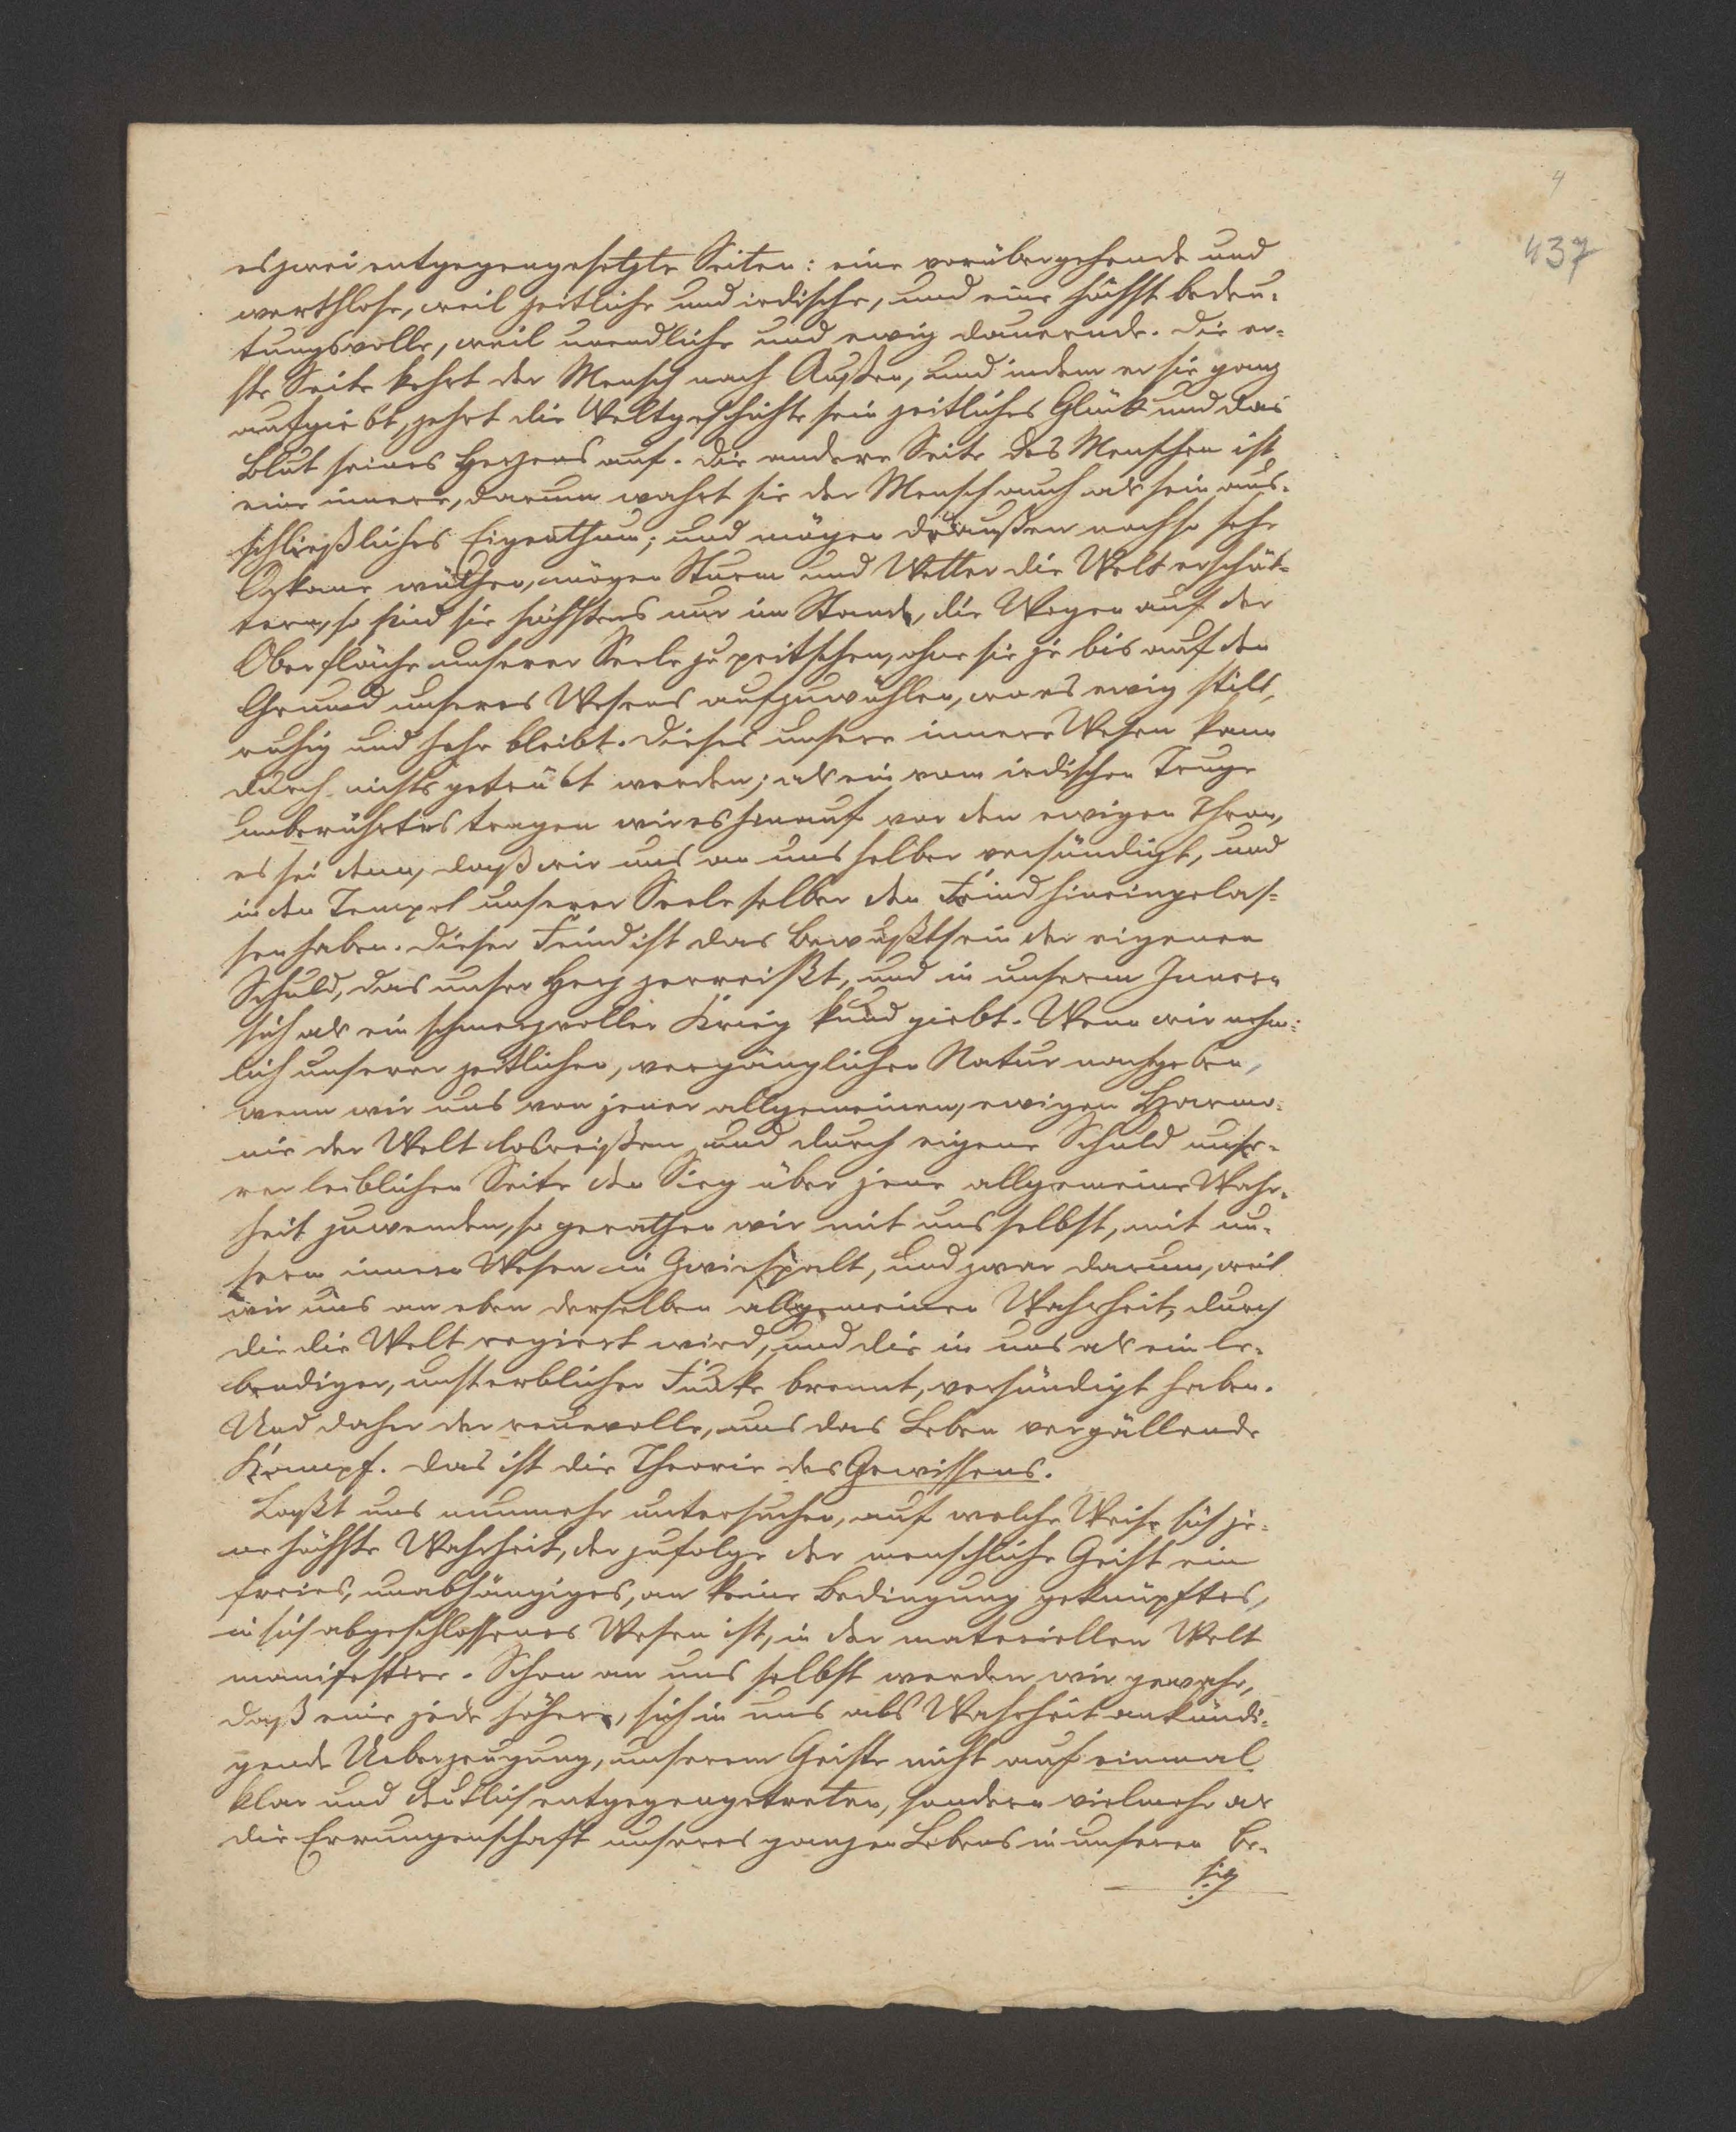 4
437
es zwei entgegengesetzte Seiten: eine vorübergehende und
werthlose, weil zeitliche und irdische, und eine höchst bedeu-
tungsvolle, weil unendliche und ewig dauernde. Die er-
ste Seite kehrt der Mensch nach Außen, und indem er sie ganz
aufgiebt, zehrt die Weltgeschichte sein zeitliches Glück und das
Blut seines Herzens auf. Die andere Seite des Menschen ist
eine innere, darum wahrt sie der Mensch auch als sein aus-
schließliches Eigenthum; und mögen draußen noch so sehr
Orkane wüthen, mögen Sturm und Wetter die Welt erschüt-
tern, so sind sie höchstens nur im Stande, die Wogen auf der
Oberfläche unserer Seele zu peitschen, ohne sie je bis auf den
Grund unseres Wesens aufzuwühlen, wo es ewig still,
ruhig und hehr bleibt. Dieses unsere innere Wesen kann
durch nichts getrübt werden; als ein vom irdischen Truge
unberührtes tragen wir es hinauf vor den ewigen Thron,
es sei denn, daß wir uns an uns selber versündigt, und
in den Tempel unserer Seele selber den Feind hineingelas-
sen haben. Dieser Feind ist das Bewußtsein der eigenen
Schuld, das unser Herz zerreißt, und in unserm Innern
sich als ein schmerzvoller Krieg kund giebt. Wenn wir nehm-
lich unserer zeitlichen, vergänglichen Natur nachgeben,
wenn wir uns von jener allgemeinen, ewigen Harmo-
nie der Welt losreißen und durch eigene Schuld unse-
rer leiblichen Seite den Sieg über jene allgemeine Wahr-
heit zuwenden, so gerathen wir mit uns selbst, mit un-
serm innern Wesen in Zwiespalt, und zwar darum, weil
wir uns an eben derselben allgemeinen Wahrheit, durch
die die Welt regiert wird, und die in uns als ein le-
bendiger, unsterblicher Funke brennt, versündigt haben.
Und daher der reuevolle, uns das Leben vergällende
Kampf. Das ist die Theorie des Gewissens.
Laßt uns nunmehr untersuchen, auf welche Weise sich je-
ne höchste Wahrheit, der zufolge der menschliche Geist ein
freies, unabhängiges, an keine Bedingung geknüpftes,
in sich abgeschlossenes Wesen ist, in der materiellen Welt
manifestire. Schon an uns selbst werden wir gewahr,
daß eine jede höhere, sich in uns als Wahrheit ankündi-
gende Ueberzeugung, unserem Geiste nicht auf einmal
klar und deutlich entgegengetreten, sondern vielmehr als
die Errungenschaft unseres ganzen Lebens in unseren Be-
sitz